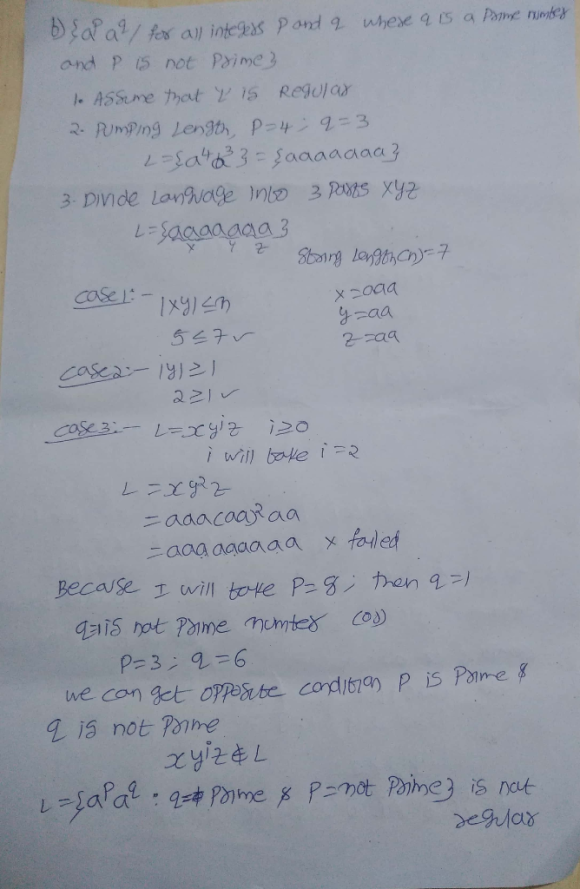 b) {a^p a^q / for all integers P and q where q is a Prime number
and P is not Prime}
1. Assume that 'L' is Regular
2. Pumping Length, P=4; q=3
L={a^4 a^3} = {aaaaaaa}
3. Divide Language Into 3 Parts xyz
L={aaaaaaa}
x y z
String Length(n)=7
case1:- |xy|≤n
5≤7✓
x=aaa
y=aa
z=aa
case2:- |y|≥1
2≥1✓
case3:- L=xy^iz i≥0
i will take i=2
L=xy^2z
=aaa(aa)^2aa
=aaaaaaaaa x failed
Because I will take P=8; then q=1
q=1 is not Prime number (or)
P=3; q=6
we can get opposite condition P is Prime &
q is not Prime
xy^iz∉L
L={a^p a^q : q= Prime & P=not Prime} is not
regular